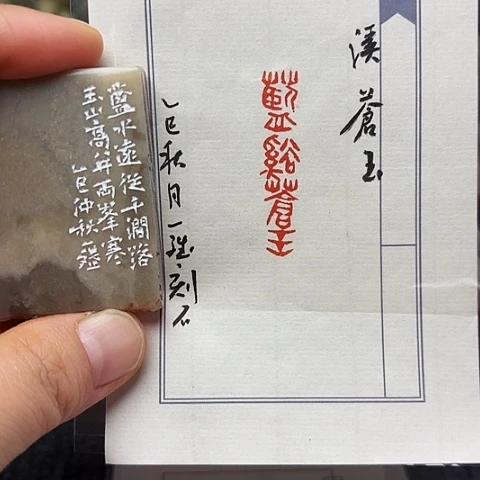 藍水遠從千澗落
玉山高并兩峯寒
乙巳仲秋
溪蒼玉
藍谿蒼玉
乙巳秋月一刻石